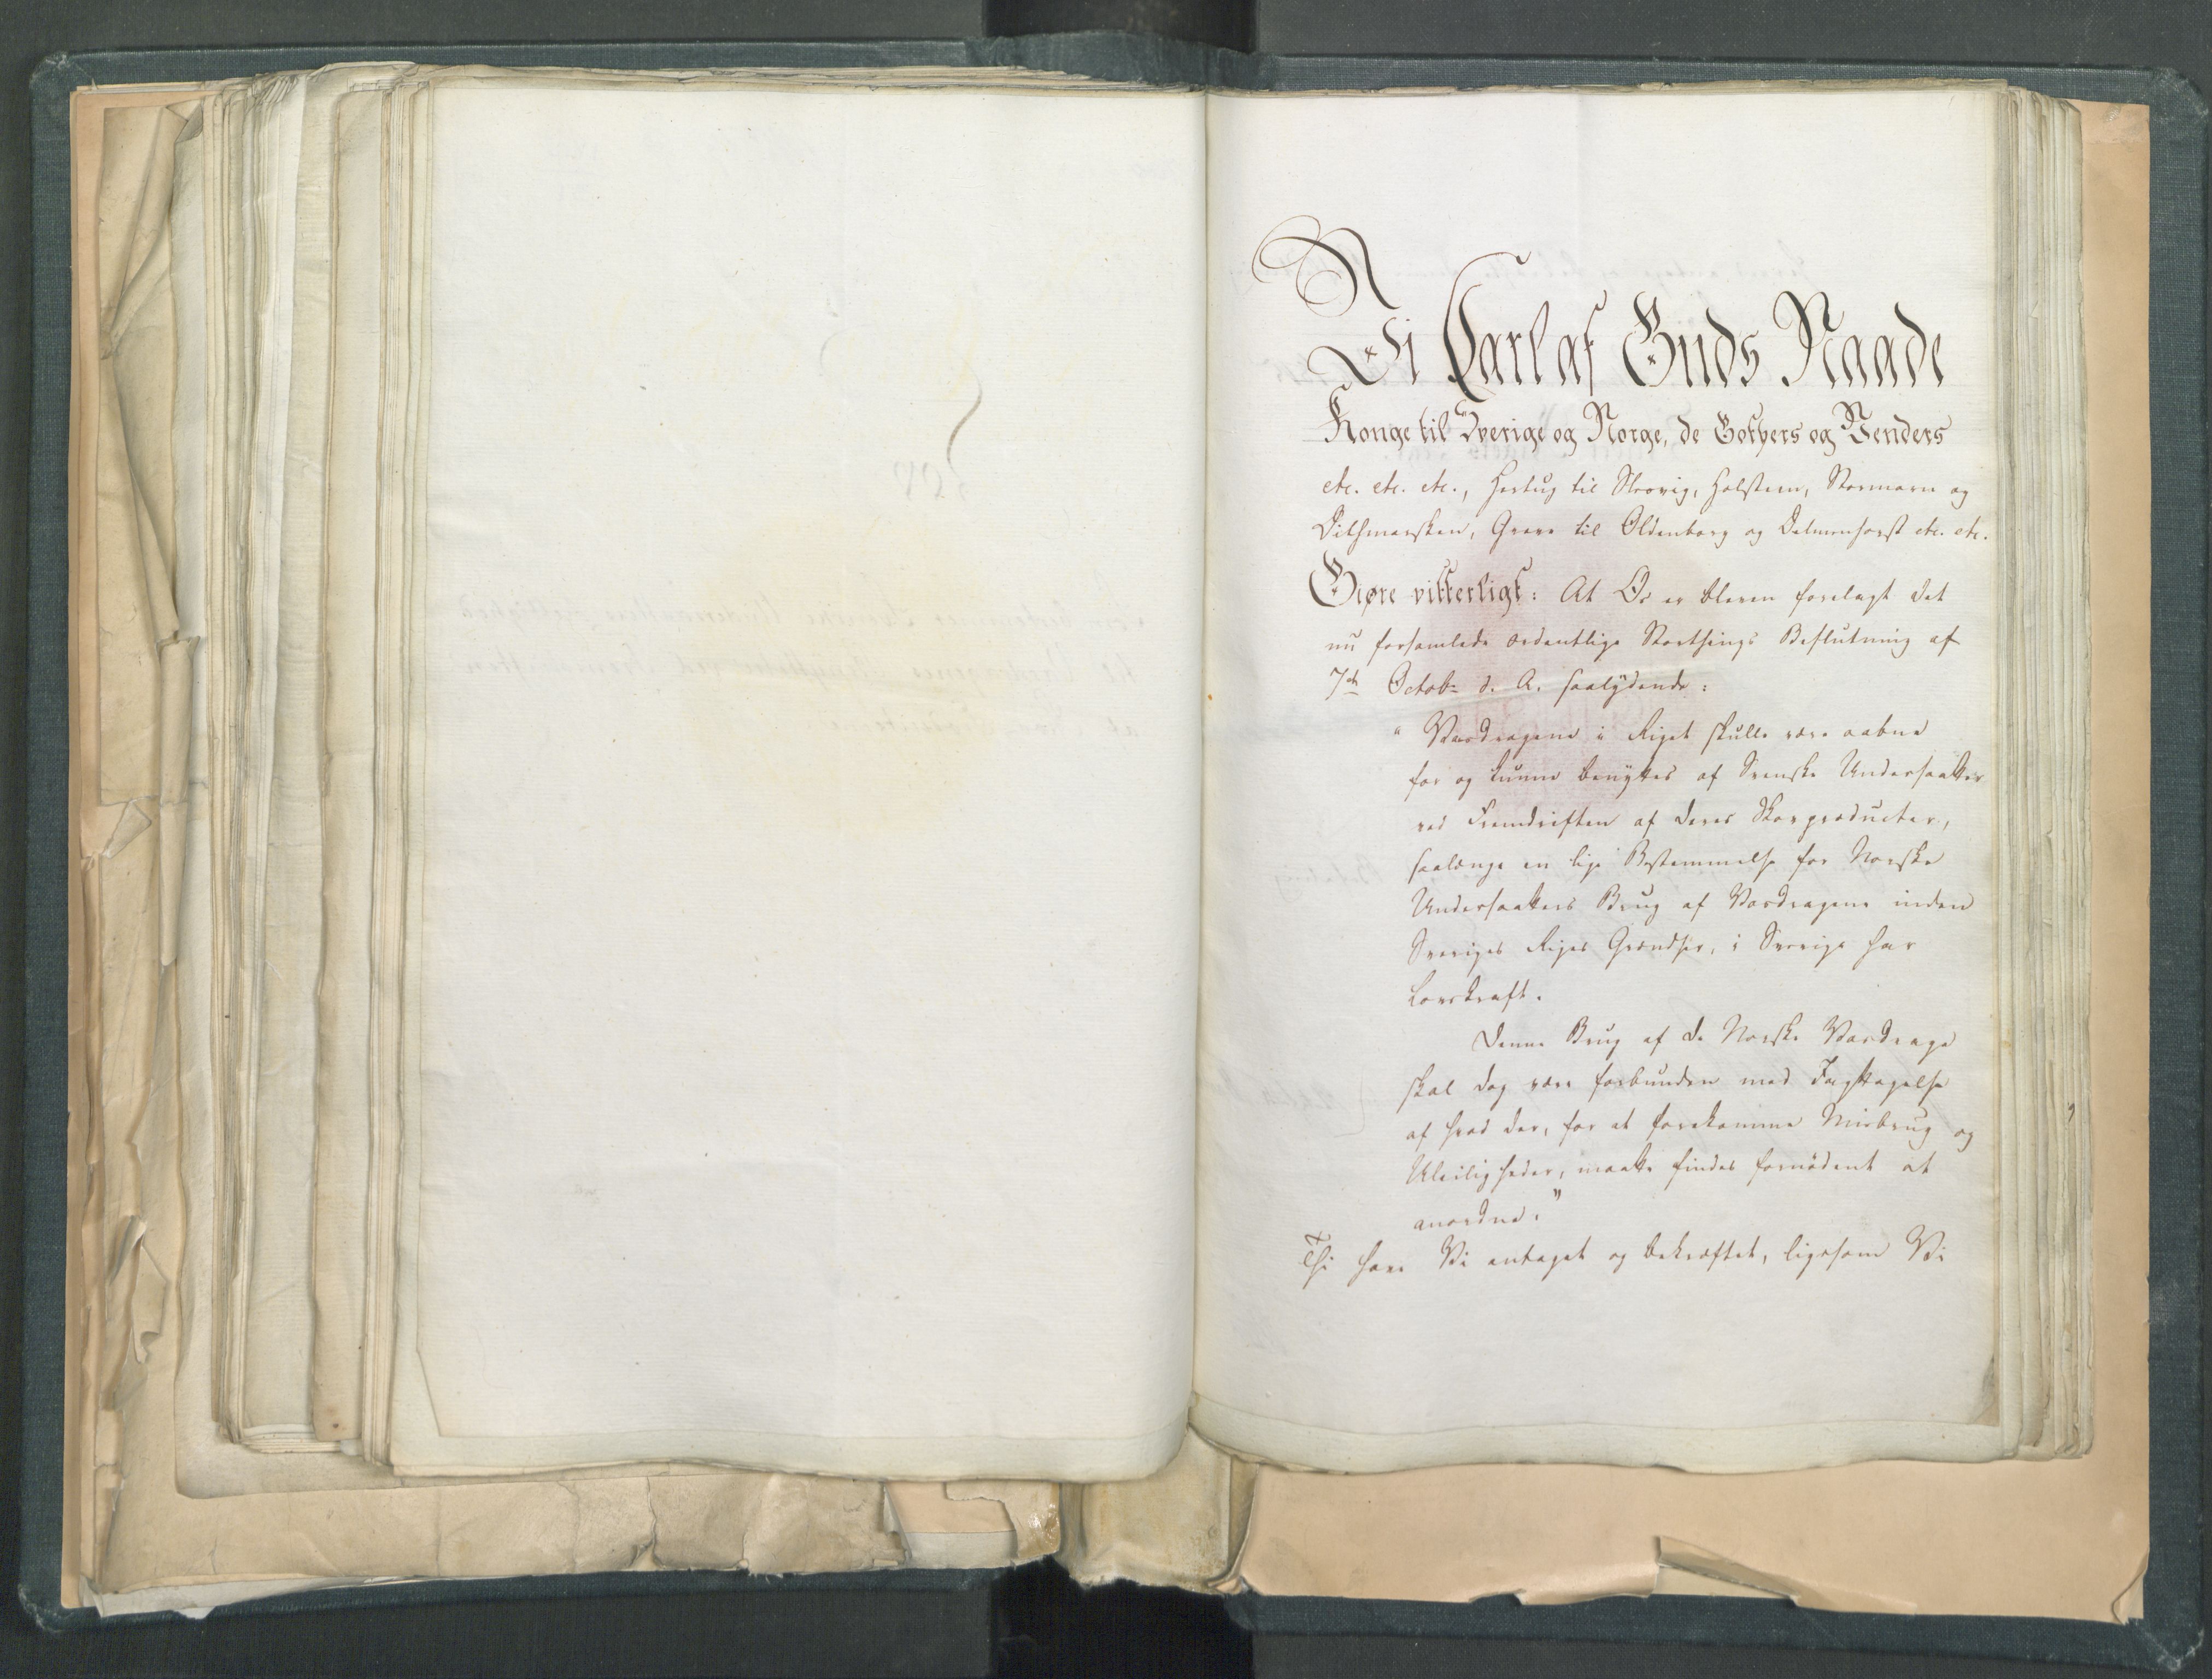 Vi Carl af Guds Naade
Konge til Sverige og Norge, de Gothers og Venders
etc. etc. etc., Hertug til Slesvig, Holsteen, Stormarn og
Dithmarsken, Greve til Oldenborg og Delmenhorst etc. etc.
Giøre vitterligt: At Os er bleven forelagt det
nu forsamlede ordentlige Storthings Beslutning af
7de Octobr d. A. saalydende:
"Vasdragene i Riget skulle være aabne
for og kunne benyttes af Svenske Undersaatter
ved Fremdriften af deres Skovproducter,
saalænge en lige Bestemmelse for Norske
Undersaatters Brug af Vasdragene inden
Sveriges Riges Grændser, i Sverige har
Lovskraft.
Denne Brug af de Norske Vasdrage
skal dog være forbunden med Iagttagelse
af hvad der, for at forekomme Misbrug og
Uleiligheder, maatte findes fornødent at
anordne."
Thi have Vi antaget og bekræftet, ligesom Vi